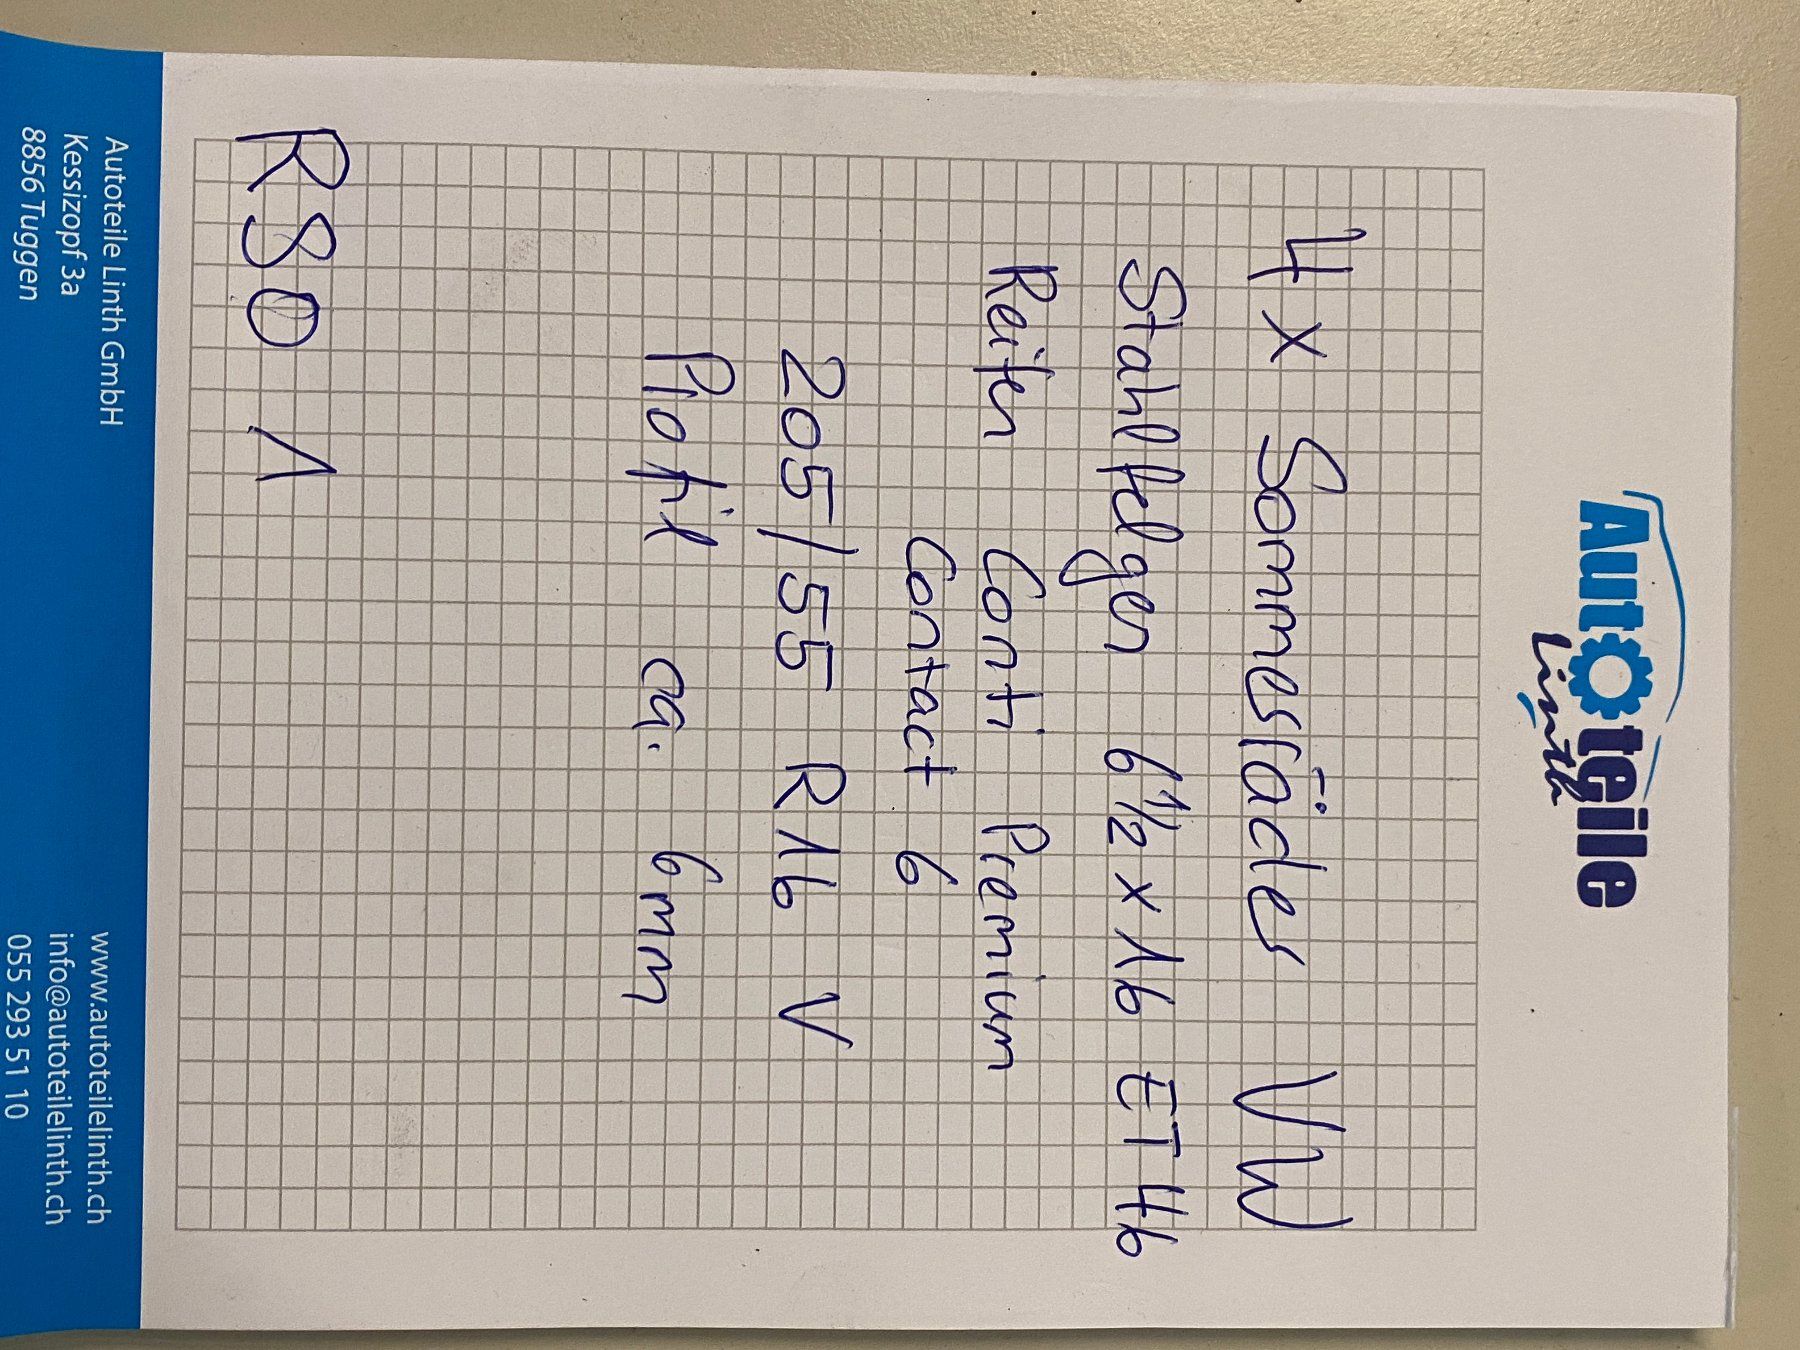 Autoteile
Linth
4 x Sommerräder VW
Stahlfelgen 6 1/2 x 16 ET 46
Reifen Conti Premium
Contact 6
205/55 R 16 V
Profil ca. 6mm
R80 1
Autoteile Linth GmbH
Kessizopf 3a
8856 Tuggen
www.autoteilelinth.ch
info@autoteilelinth.ch
055 293 51 10